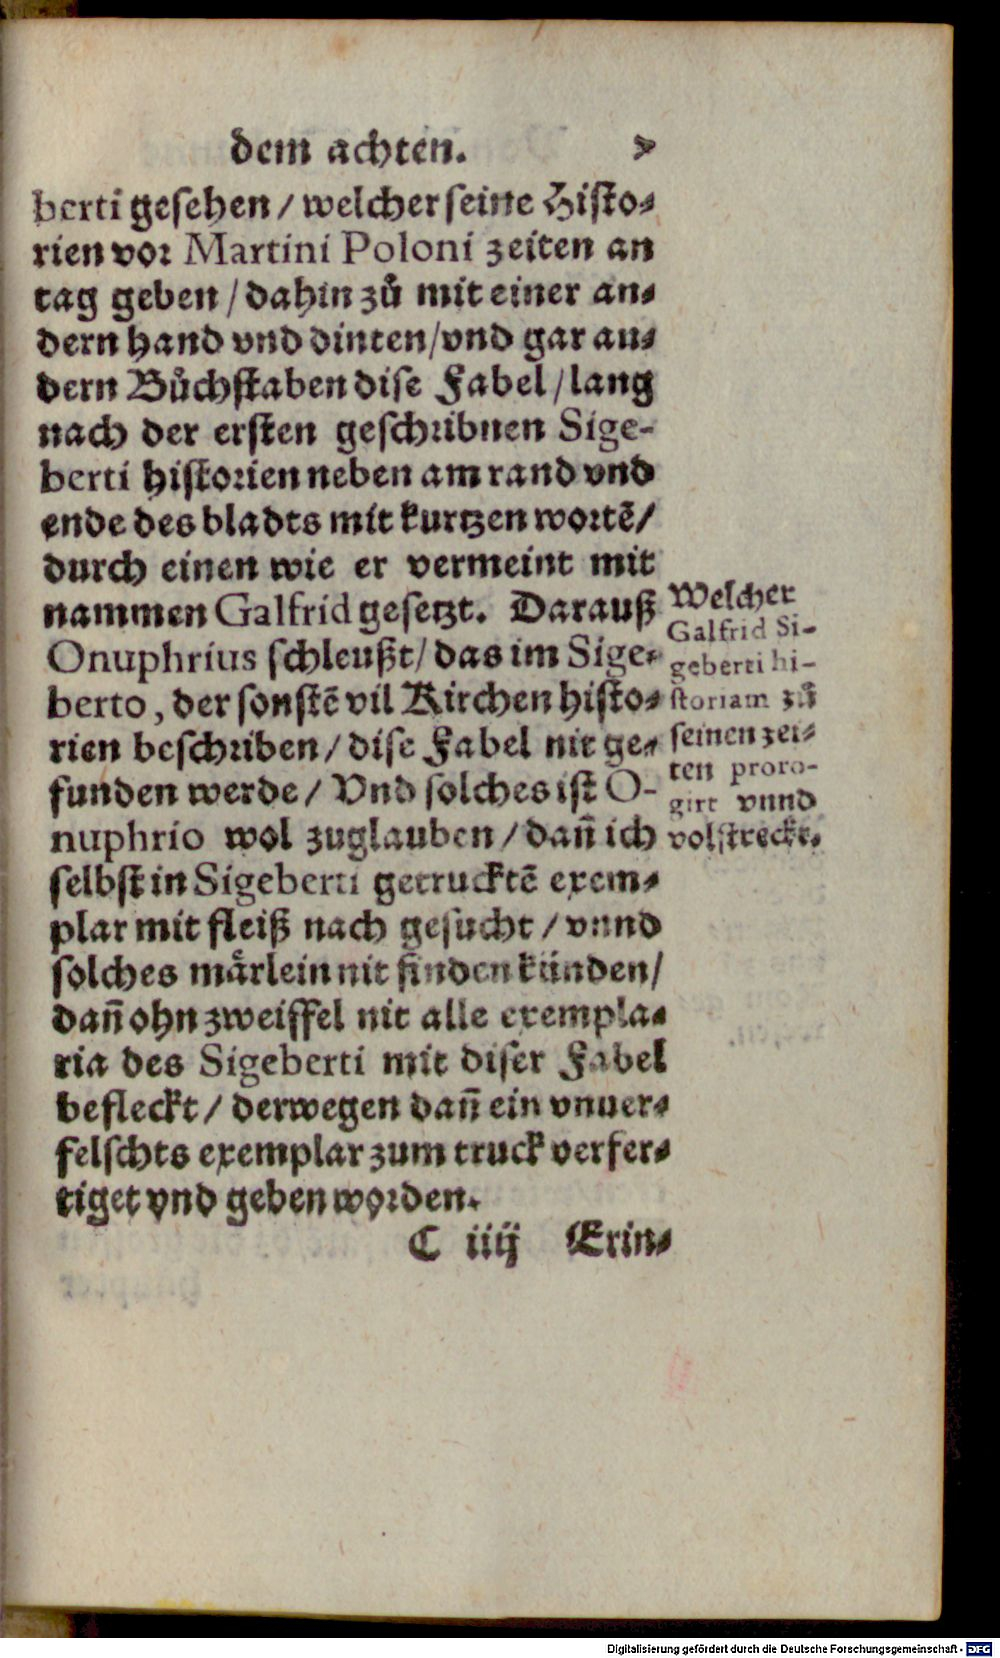 dem achten.
berti gesehen / welcher seine Histo-
rien vor Martini Poloni zeiten an
tag geben / dahin zů mit einer an-
dern hand vnd dinten / vnd gar an-
dern Bůchstaben dise Fabel / lang
nach der ersten geschribnen Sige-
berti historien neben am rand vnd
ende des bladts mit kurtzen wortē /
durch einen wie er vermeint mit
nammen Galfrid gesetzt. Darauß
Onuphrius schleußt / das im Sige-
berto, der sonstē vil Kirchen histo-
rien beschriben / dise Fabel nit ge-
funden werde / Vnd solches ist O-
nuphrio wol zuglauben / dañ ich
selbst in Sigeberti getrucktē exem-
plar mit fleiß nach gesucht / vnnd
solches märlein nit finden künden /
dañ ohn zweiffel nit alle exempla-
ria des Sigeberti mit diser Fabel
befleckt / derwegen dañ ein vnuer-
felschts exemplar zum truck verfer-
tiget vnd geben worden.
C iiij Erin-
Welcher
Galfrid Si-
geberti hi-
storiam zů
seinen zei-
ten proro-
girt vnnd
volstreckt.
Digitalisierung gefördert durch die Deutsche Forschungsgemeinschaft - DFG